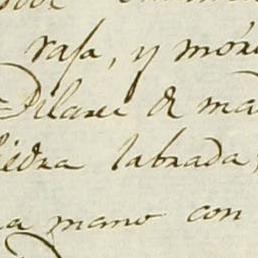 rasa, y mór
Pilare de ma
iedra labrada,
a mano con